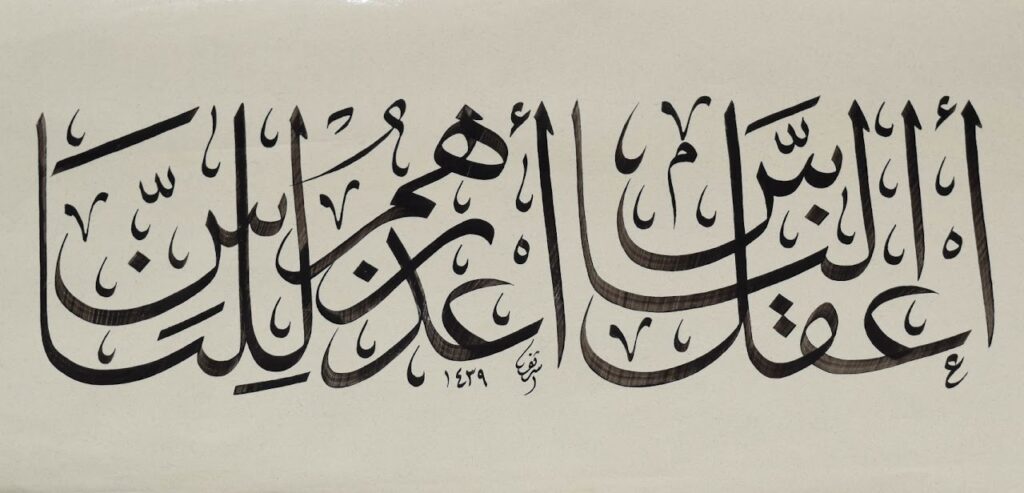 أعقل الناس أعذرهم للناس
١٤٣٩